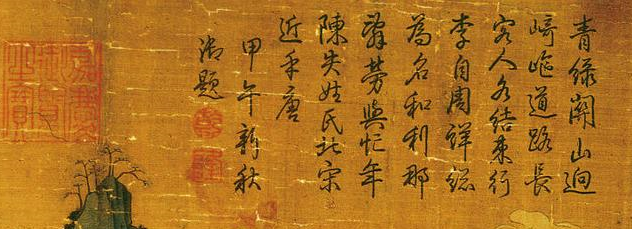 青綠關山迥
崎嶇道路長
客人各結束行
李自周詳總
為名和利那
辭勞與忙年
陳失姓氏北宋
近乎唐
甲午新秋
御題
嘉慶御覽之寶